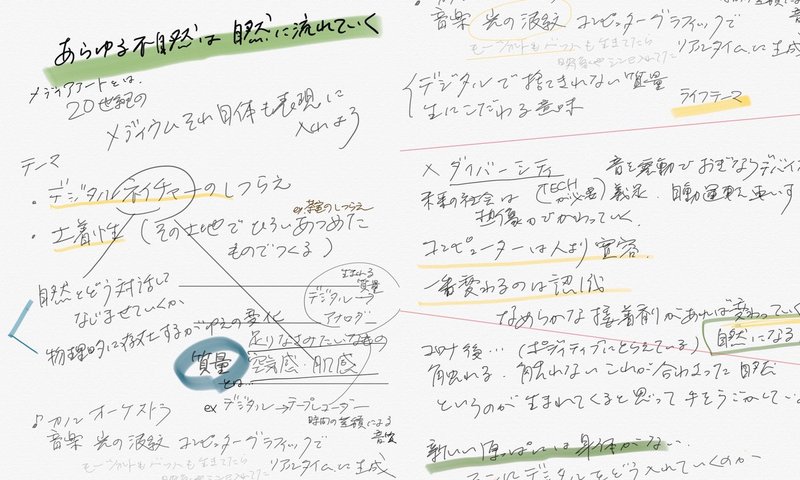 あらゆる不自然は 自然に流れていく
メディアアートとは、
20世紀の
メディウムそれ自体も表現に
入れよう
テーマ
・デジタルネイチャーのしつらえ
・土着性 (その土地でひろいあつめた
ものでつくる)
自然とどう対話して
なじませていくか、
物理的に存在するがゆえの変化
生まれる
質量
デジタル→
アナログ
足りなさみたいなもの
質量 空気感・肌感
とは
ex デジタル→テープレコーダー
時間の蓄積による
♪ オーケストラ
音楽 光の波紋 コンピューターグラフィックで
モーツァルトもバッハも生きてたら
リアルタイムに生成
音楽 光の波紋 コンピューターグラフィックで
モーツァルトもバッハも生きてたら
リアルタイムに生成
デジタルで捨てきれない質量
生にこだわる意味
ライフテーマ
× ダイバーシティ
音を振動でおぎなうデバイス
未来の社会は (TECHが必要) 義足、自動運転車いす
想像力でかわっていく
コンピューターは人より寛容
一番変わるのは認識
なめらかな接着剤があれば変わっていく
自然になる
コロナ後… (ポジティブにとらえている)
触れる 触れない これが合わさった自然
というのが生まれてくると思って手をうごかして
新しい原っぱには身体がない
デジタルをどう入れていくのか